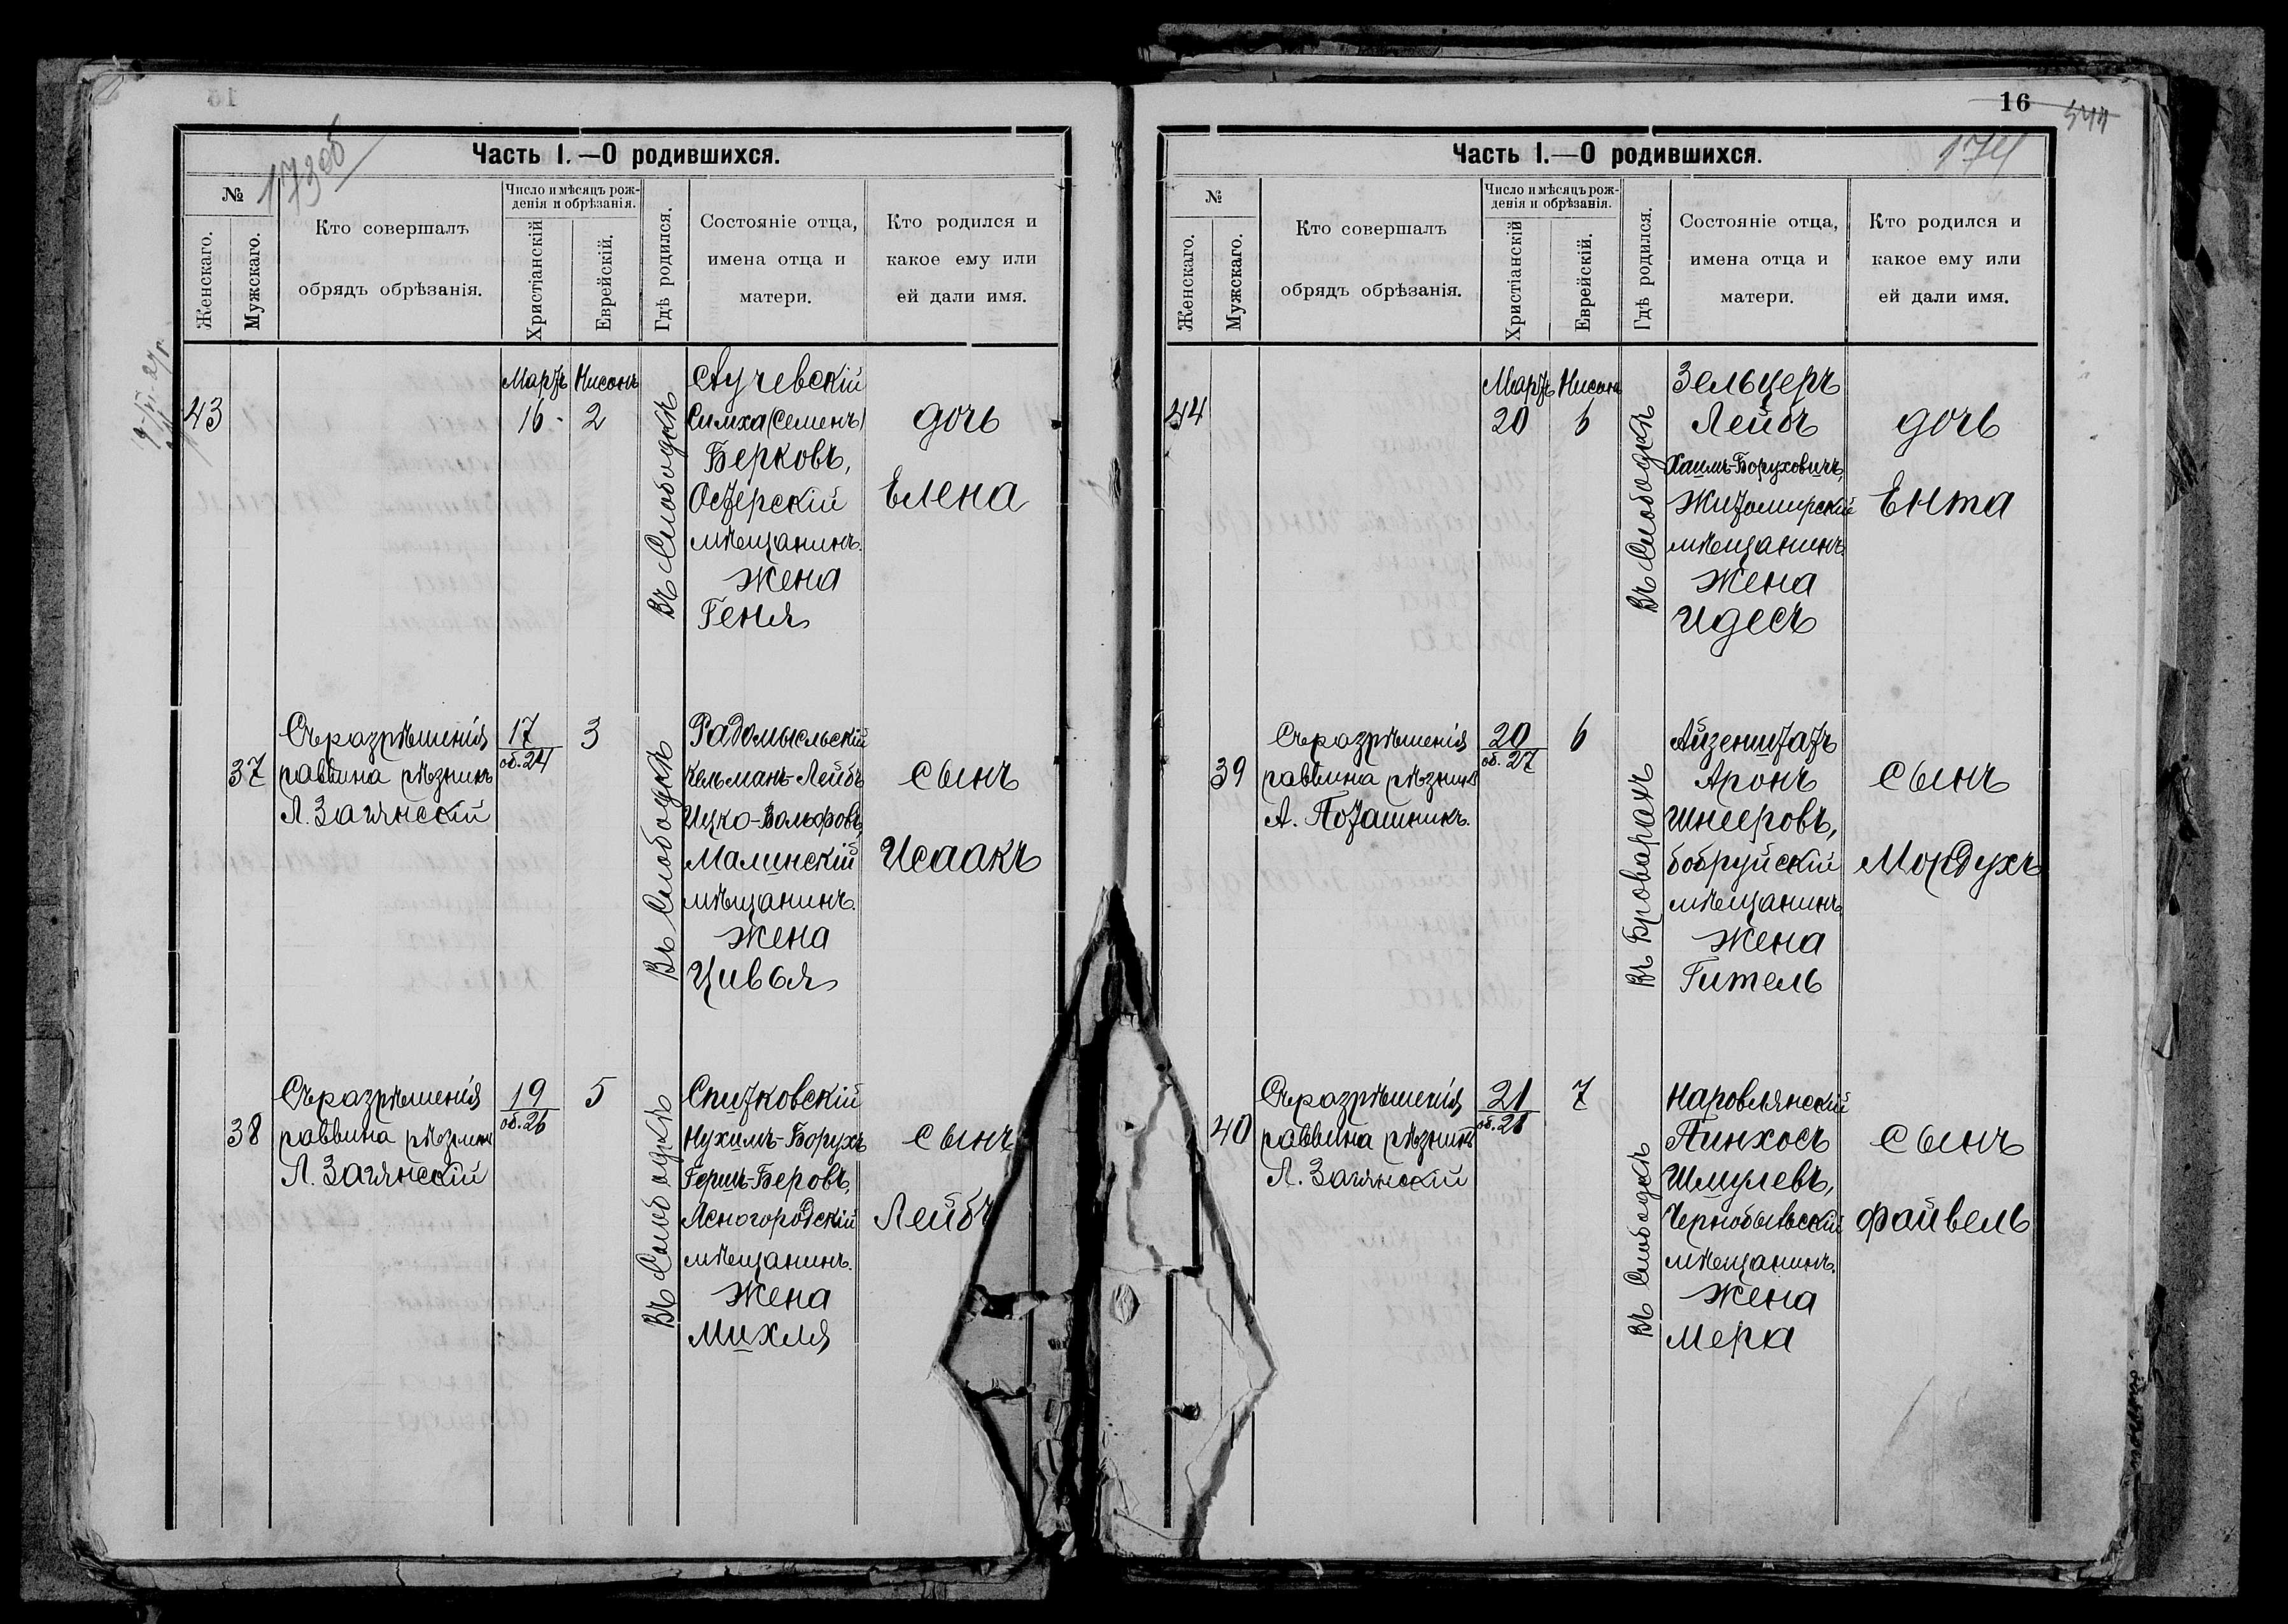 173об
Часть I.—О родившихся.
№
Женскаго.
Мужскаго.
Кто совершалъ
обрядъ обрѣзанія.
Число и мѣсяцъ рож-
денія и обрѣзанія.
Христіанскій
Еврейскій.
Гдѣ родился.
Состояніе отца,
имена отца и
матери.
Кто родился и
какое ему или
ей дали имя.
43
Мартъ Нисонъ
16 - 2
Въ Слободкѣ
Симха (Семенъ)
Берковъ,
Остерскій
мѣщанинъ.
жена
Геня
дочь
Елена
37
Съ разрѣшенія
раввина рѣзникъ
Л. Загянскій
17
об. 24
3
Въ Слободкѣ
Радомысльскій
Кельманъ-Лейбъ
Ицко-Вольфовъ,
Малинскій
мѣщанинъ.
жена
Цивья
сынъ
Исаакъ
38
Съ разрѣшенія
раввина рѣзникъ
Л. Загянскій
19
об. 26
5
Въ Слободкѣ
Спитковскій
Нухимъ-Борухъ
Гершъ-Беровъ,
Ясногородскій
мѣщанинъ.
жена
Михля
сынъ
Лейбъ
16
544
174
Часть I.—О родившихся.
№
Женскаго.
Мужскаго.
Кто совершалъ
обрядъ обрѣзанія.
Число и мѣсяцъ рож-
денія и обрѣзанія.
Христіанскій
Еврейскій.
Гдѣ родился.
Состояніе отца,
имена отца и
матери.
Кто родился и
какое ему или
ей дали имя.
44
Мартъ Нисонъ
20 6
Въ Слободкѣ
Зельцеръ
Лейбъ
Хаимъ-Боруховичъ,
Житомирскій
мѣщанинъ.
жена
Идесъ
дочь
Ента
39
Съ разрѣшенія
раввина рѣзникъ
А. Поташникъ.
20
об. 27
6
Въ Броварахъ
Айзенштатъ
Аронъ
Шнееровъ,
бобруйскій
мѣщанинъ.
жена
Гитель
сынъ
Мордухъ
40
Съ разрѣшенія
раввина рѣзникъ
Л. Загянскій
21
об. 28
7
Въ Слободкѣ
Наровлянскій
Пинхосъ
Шмулевъ,
Чернобыльскій
мѣщанинъ.
жена
Мера
сынъ
Файвель